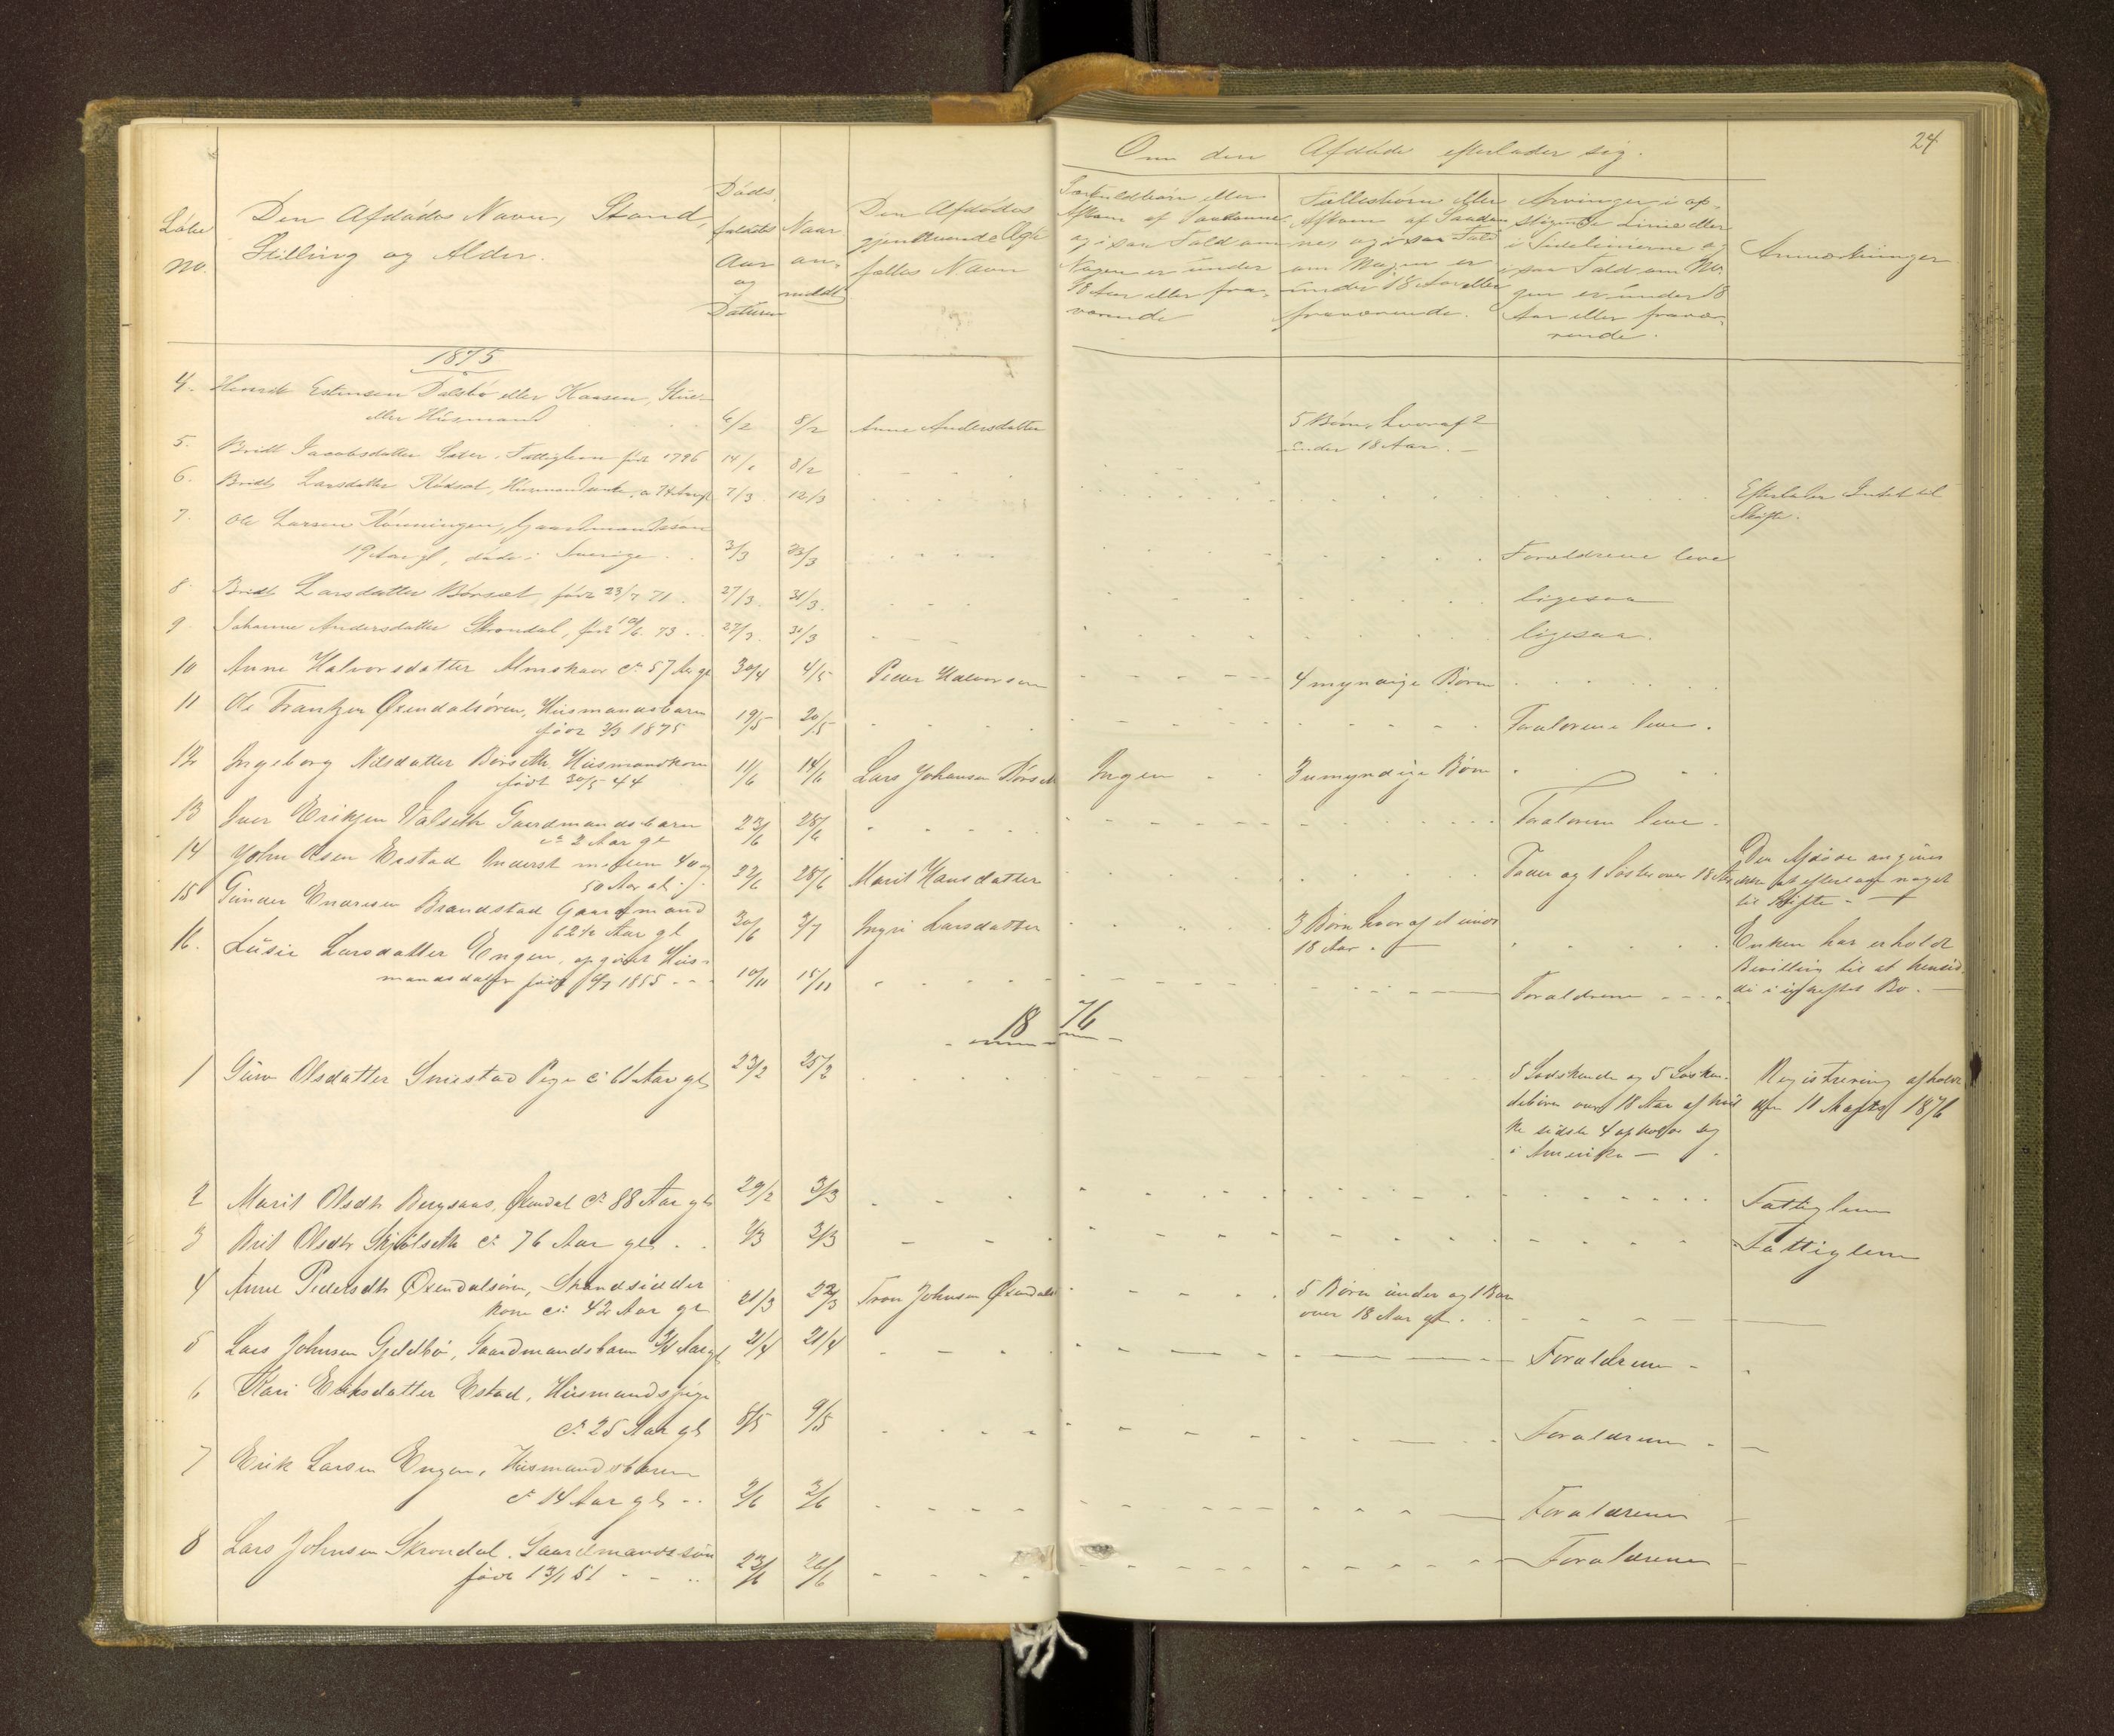 24
Om den Afdøde efterlader sig.
Løbe No.
Den Afdødes Navn, Stand, Stilling og Alder.
Døds faldets Aar og Datum
Naar anmeldt
Den Afdødes gjenlevende Ægtefælles Navn
Særkuldbørn eller Afkom af Saadanne og i saa Fald om Nogen er under 18 Aar eller fraværende
Fællesbørn eller Afkom af Saadannes og i saa Fald om Nogen er under 18 Aar eller fraværende.
Arvinger i opstigende Linie eller i Sidelinierne og i saa Fald om Nogen er under 18 Aar eller fraværende.
Anmærkninger
1875
4. Henrik Estensen Dalsbø eller Kaasen,
eller Husmand 6/2 8/2 Anne Andersdatter 5 Børn, hvoraf 2
under 18 Aar. -
5. Bridt Jacobsdatter Fattiglem født 1796 14/1 8/2
6. Bridt Larsdatter Rødsæt, Husmandsenke, 7/3 12/3 Efterlader Intet til
Skifte.
7. Ole Larsen Rønningen, Gaardmandssøn
19 Aar gl, døde i Sverige 3/3 23/3 Forældrene leve
8. Bridt Larsdatter Børsæt, født 23/7 71. 27/3 31/3 ligesaa
9. Johanne Andersdatter Skrondal, født 73. 27/3 30/3 ligesaa.
10 Anne Halvorsdatter Almskaar ca 57 Aar gl 30/4 4/5 Peder Halvorsen 4 myndige Børn
11 Ole Frantzen Øxendalsøren, Husmandsbarn
født 3/3 1875 19/5 20/5 Forældrene leve.
12 Ingeborg Nilsdatter Børseth Husmandkone
født 30/5 44 11/6 14/6 Lars Johansen Børseth Ingen 3 umyndige Børn
13 Iver Eriksen Valseth Gaardmandsbarn
ca 2 Aar gl 23/6 28/6 Forældrene leve.
14 John Olsen Erstad Inderst mellem 40 og
50 Aar gl. 22/6 28/6 Marit Hansdatter Fader og 1 Søster over 18 Aar Den Afdøde angives
ikke at efterlade noget
til Skifte -
15 Gunder Endresen Brandstad Gaardmand
62½ Aar gl 30/6 2/7 Ingri Larsdatter 3 Børn hvoraf et under
18 Aar. Enken har erholdt
Bevilling til at hensid-
de i uskiftet Bo. -
16. Lusie Larsdatter Engen, ugivt Hus-
mandsdatter født 1855 - 10/11 15/11 Forældrene
1876
1 Guru Olsdatter Smestad Pige ca 61 Aar gl 23/2 25/2 5 Sødskende og 5 Søsken-
debørn over 18 Aar af hvil
ke sidste 4 opholde sig
i Amerika - Registrering afholdt
den 11 Marts 1876
2 Marit Olsdtr Bergsaas, Øxendal ca 88 Aar gl 29/2 3/3 Fattiglem
3 Brit Olsdtr Skjølseth ca 76 Aar gl. 2/3 3/3 Fattiglem
4 Anne Pedersdtr Øxendalsøren, Strandsidder
kone ca 42 Aar gl 21/3 22/3 Tron Johnsen Øxendals 5 Børn under og 1 Barn
over 18 Aar gl.
5 Lars Johnsen Gjeldbø, Gaardmandsbarn 3/4 Aar gl 2/4 21/4 Forældrene
6 Kari Eriksdatter Estad, Husmandspige
ca 25 Aar gl 8/5 9/5 Forældrene
7 Erik Larsen Engen, Husmandsbarn
ca 14 Aar gl 2/6 3/6 Forældrene
8 Lars Johnsen Skrondal, Gaardmandssøn
født 13/1 51 23/6 26/6 Forældrene